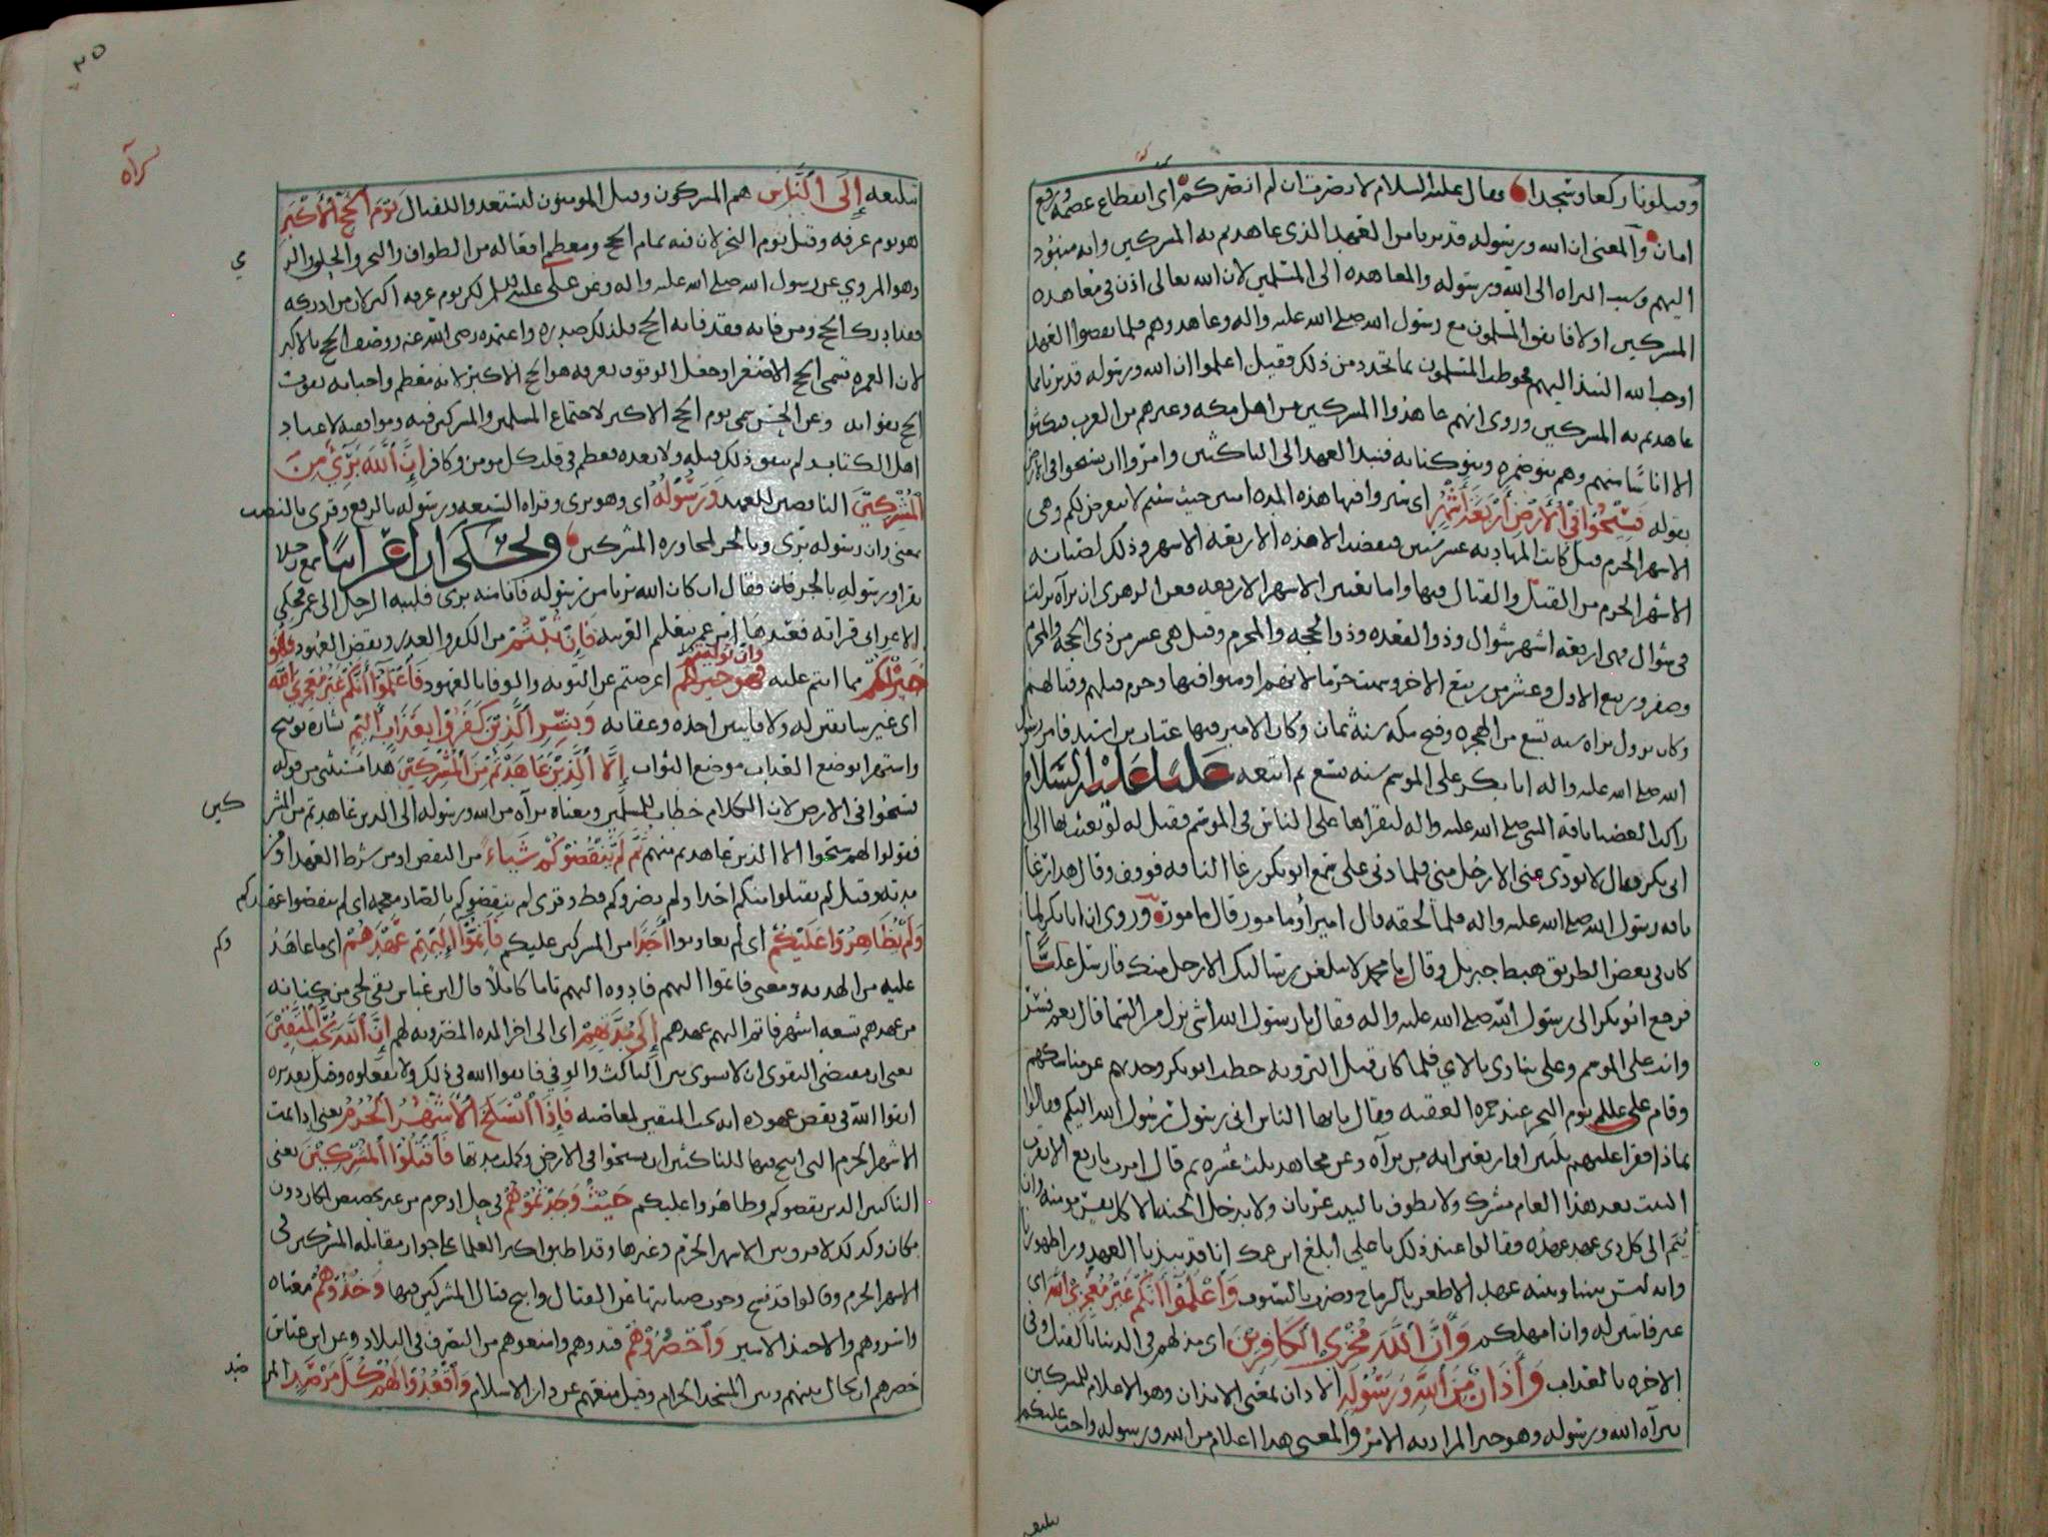 وقتلونا ركعا وسجدا فقال عليه السلام لا نصرت ان لم انصركم اي انقطاع عصمة ورفع
امان والمعنى ان الله ورسوله قد بريا من العهد الذي عاهدتم به المشركين وانه منبوذ
اليهم وسبب البراه الى الله ورسوله والمعاهده الى المسلمين لان الله تعالى اذن في معاهده
المشركين اولا فاتفق المسلمون مع رسول الله صلى الله عليه واله وعاهدوهم فلما نقضوا العهد
اوجب الله النبذ اليهم فخوطب المسلمون بما تجدد من ذلك فقيل اعلموا ان الله ورسوله قد بريا مما
عاهدتم به المشركين وروى انهم عاهدوا المشركين من اهل مكه وغيرهم من العرب فنكثوا
الا اناسا منهم وهم بنو ضمره وبنو كنانه فنبذ العهد الى الناكثين وامروا ان يسيحوا في الارض
بقوله فسيحوا في الأرض أربعة أشهر اي سيروا فيها هذه المده امنين حيث شئتم لا يتعرض لكم وهي
الاشهر الحرم قيل كانت المهادنه عشر سنين فنقضت الا هذه الاربعه الاشهر وذلك لصيانه
الاشهر الحرم من القتل والقتال فيها واما تفسير الاشهر الاربعه فعن الزهري ان براه نزلت
في شوال فهي اربعه اشهر شوال وذو القعده وذو الحجه والمحرم وقيل هي عشر من ذي الحجه والمحرم
وصفر وربيع الاول وعشر من ربيع الاخر وسميت حرما لانهم اومنوا فيها وحرم قتلهم وقتالهم
وكان نزول براه سنه تسع من الهجره وفتح مكه سنة ثمان وكان الامير فيها عتاب بن اسيد فامر رسول
الله صلى الله عليه واله ابا بكر على الموسم سنه تسع ثم اتبعه عليا عليه السلام
راكبا العضبا ناقه النبي صلى الله عليه واله ليقراها على الناس في الموسم فقيل له لو بعثت بها الى
ابي بكر فقال لا يودي عني الا رجل مني فلما دنى علي سمع ابو بكر رغا الناقه فوقف وقال هذا رغا
ناقه رسول الله صلى الله عليه واله فلما لحقه قال امير أو مامور قال مامور وروي ان ابا بكر لما
كان في بعض الطريق هبط جبريل وقال يا محمد لا يبلغن رسالتك الا رجل منك فارسل عليا
فرجع ابو بكر الى رسول الله صلى الله عليه واله فقال يا رسول الله اشي نزل من السما قال نعم فسر
وانت على الموسم وعلي ينادي بالاي فلما كان قبل الترويه خطب ابو بكر وحدثهم عن مناسكهم
وقام علي عليلم يوم النحر عند جمره العقبه فقال يا ايها الناس اني رسول رسول الله اليكم فقالوا
بماذا فقرا عليهم ثلثين او اربعين ايه من براه وعن مجاهد ثلث عشره ثم قال امرت باربع الا يقرب
البيت بعد هذا العام مشرك ولا يطوف بالبيت عريان ولا يدخل الجنه الا كل نفس مومنه وان
يتم الى كل ذي عهد عهده فقالوا عند ذلك يا علي ابلغ ابن عمك انا قد نبذنا العهد ورا ظهورنا
وانه ليس بيننا وبينه عهد الا طعن بالرماح وضرب بالسيوف وأعلموا أنكم غير معجزي الله اي
غير فايتين له وان امهلكم وأن الله مخزي الكافرين اي مذلهم في الدنيا بالقتل وفي
الاخره بالعذاب وأذان من الله ورسوله الاذان بمعنى الايذان وهو الاعلام للمشركين
ببراه الله ورسوله وهو خبر المراد به الامر والمعنى هذا اعلام من الله ورسوله واجب عليكم
تبليغه
٢٥
براه
تبليغه إلى الناس هم المشركون وقيل المومنون ليستعدوا للقتال يوم الحج الأكبر
هو يوم عرفه وقيل يوم النحر لان فيه تمام الحج ومعظم افعاله من الطواف والنحر والحلق والر
مي
وهو المروي عن رسول الله صلى الله عليه واله وعن علي عليه السلم لكن يوم عرفه اكبر لان من ادركه
فقد ادرك الحج ومن فاته فقد فاته الحج فلذلك صدره واعتمده رضى الله عنه ووصف الحج بالاكبر
لان العمره تسمى الحج الاصغر او جعل الوقوف بعرفه هو الحج الاكبر لانه معظم واجباته يفوت
الحج بفواته وعن الحسن سمي يوم الحج الاكبر لاجتماع المسلمين والمشركين فيه وموافقته لاعياد
اهل الكتاب ولم يتفق ذلك قبله ولا بعده فعظم في قلب كل مومن وكافر إن الله بري من
المشركين الناقضين للعهد ورسوله اي وهو بري وقراه السبعه ورسوله بالرفع وقري بالنصب
بمعنى وان رسوله بري وبالجر لمجاوره المشركين ولحكى ان اعرابيا سمع رجلا
يقرا ورسوله بالجر فقال ان كان الله بريا من رسوله فانا منه بري فلببه الرجل الى عمر فحكى
الاعرابي قراته فعندها امر عمر بتعليم العربيه فإن تبتم من الكفر والغدر ونقض العهود فهو
خير لكم مما انتم عليه وان توليتم اعرضتم عن التوبه والوفا بالعهود فأعلموا أنكم غير معجزي الله
اي غير سابقين له ولا فايتين اخذه وعقابه وبشر الذين كفروا بعذاب أليم بشاره توبيخ
واستهزا بوضع العذاب موضع الثواب إلا الذين عاهدتم من المشركين هذا مستثنى من قوله
فسيحوا في الارض لان الكلام خطاب للمسلمين ومعناه براه من الله ورسوله الى الذين عاهدتم من المشر
كين
فقولوا لهم سيحوا الا الذين عاهدتم منهم ثم لم ينقضوكم شيأ من النقض او من شرط العهد او من
مدته وقيل لم يقتلوا منكم احدا ولم يضروكم قط وقري لم ينقضوكم بالضاد معجمه اي لم ينقضوا عهدكم
ولم يظاهروا عليكم اي لم يعاونوا أحدا من المشركين عليكم فأتموا إليهم عهدهم اي ما عاهد
وكم
عليه من الهدنه ومعنى فاتموا اليهم فادوه اليهم تاما كاملا قال ابن عباس بقي لحي من كنانه
من عهدهم تسعه اشهر فاتم اليهم عهدهم إلى مدتهم اي الى اخر المده المضروبه لهم إن الله يحب المتقين
يعني ان مقتضى التقوى ان لا يسوى بين الناكث والوفي فاتقوا الله في ذلك ولا تفعلوه وقيل تقديره
اتقوا الله في نقض عهوده انه يحب المتقين لمعاصيه فإذا انسلخ الأشهر الحرم يعني اذا تمت
الاشهر الحرم التي ابيح فيها للناكثين ان يسيحوا في الارض وكملت مدتها فأقتلوا المشركين يعني
الناكثين الذين نقضوكم وظاهروا عليكم حيث وجدتموهم في حل او حرم من غير تخصيص لمكان دون
مكان وكذلك لا فرق بين الاشهر الحرم وغيرها وقد اطبق اكثر العلما على جواز مقاتله المشركين في
الاشهر الحرم وقالوا قد نسخ وجوب صيانتها عن القتال وابيح قتال المشركين فيها وخذوهم معناه
واسروهم والاخيذ الاسير وأحصروهم قيدوهم وامنعوهم من التصرف في البلاد وعن ابن عباس
حصرهم ان يحال بينهم وبين المسجد الحرام وقيل منعهم عن دار الاسلام وأقعدوا لهم كل مرصد المر
صد